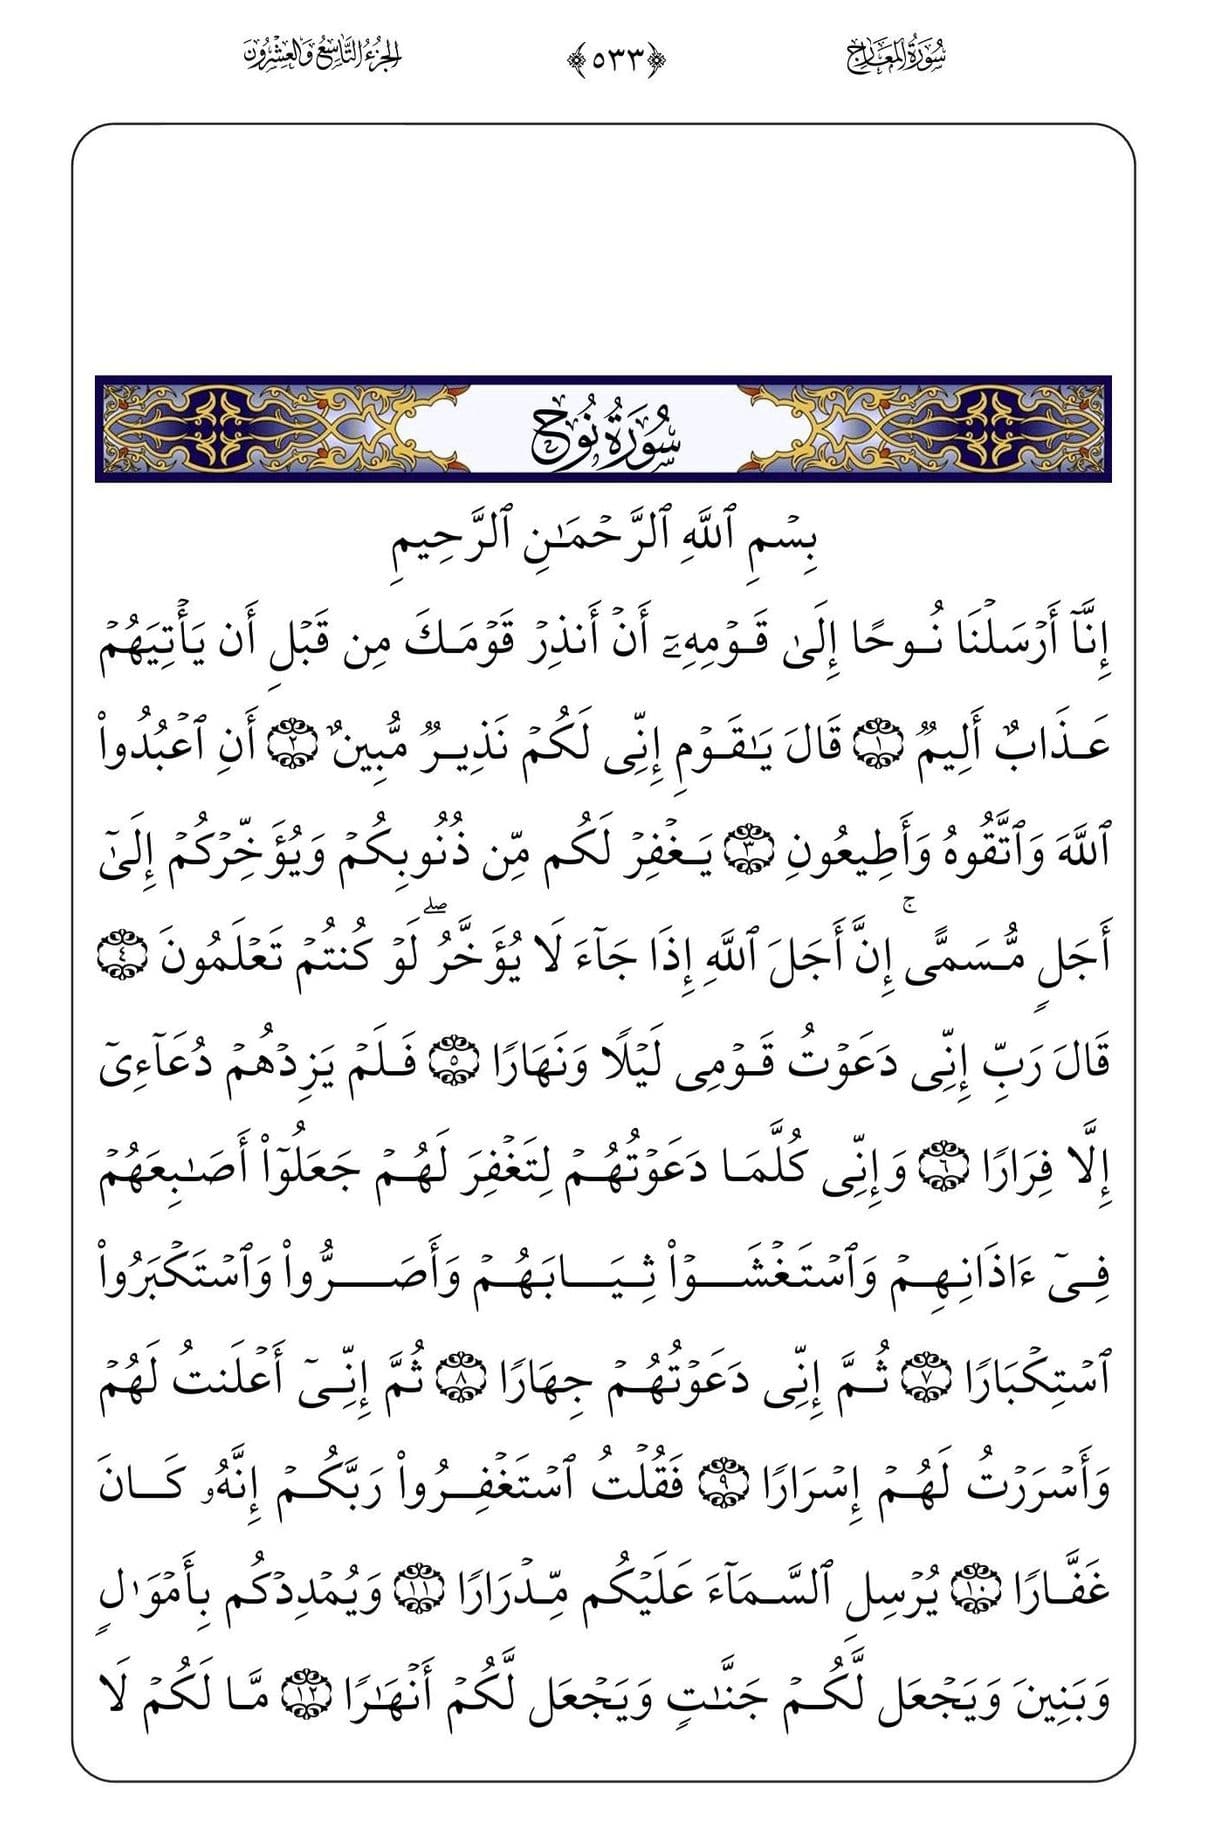 سُورَةُ المَعَارِج ﴿٥٣٣﴾ الجُزْءُ التَّاسِعُ وَالعِشْرُونَ
سُورَةُ نُوحٍ
بِسۡمِ ٱللَّهِ ٱلرَّحۡمَٰنِ ٱلرَّحِيمِ
إِنَّآ أَرۡسَلۡنَا نُوحًا إِلَىٰ قَوۡمِهِۦٓ أَنۡ أَنذِرۡ قَوۡمَكَ مِن قَبۡلِ أَن يَأۡتِيَهُمۡ
عَذَابٌ أَلِيمٌ ١ قَالَ يَٰقَوۡمِ إِنِّي لَكُمۡ نَذِيرٌ مُّبِينٌ ٢ أَنِ ٱعۡبُدُواْ
ٱللَّهَ وَٱتَّقُوهُ وَأَطِيعُونِ ٣ يَغۡفِرۡ لَكُم مِّن ذُنُوبِكُمۡ وَيُؤَخِّرۡكُمۡ إِلَىٰٓ
أَجَلٍ مُّسَمًّىۚ إِنَّ أَجَلَ ٱللَّهِ إِذَا جَآءَ لَا يُؤَخَّرُۖ لَوۡ كُنتُمۡ تَعۡلَمُونَ ٤
قَالَ رَبِّ إِنِّي دَعَوۡتُ قَوۡمِي لَيۡلًا وَنَهَارًا ٥ فَلَمۡ يَزِدۡهُمۡ دُعَآءِيٓ
إِلَّا فِرَارًا ٦ وَإِنِّي كُلَّمَا دَعَوۡتُهُمۡ لِتَغۡفِرَ لَهُمۡ جَعَلُوٓاْ أَصَٰبِعَهُمۡ
فِيٓ ءَاذَانِهِمۡ وَٱسۡتَغۡشَوۡاْ ثِيَابَهُمۡ وَأَصَرُّواْ وَٱسۡتَكۡبَرُواْ
ٱسۡتِكۡبَارًا ٧ ثُمَّ إِنِّي دَعَوۡتُهُمۡ جِهَارًا ٨ ثُمَّ إِنِّيٓ أَعۡلَنتُ لَهُمۡ
وَأَسۡرَرۡتُ لَهُمۡ إِسۡرَارًا ٩ فَقُلۡتُ ٱسۡتَغۡفِرُواْ رَبَّكُمۡ إِنَّهُۥ كَانَ
غَفَّارًا ١٠ يُرۡسِلِ ٱلسَّمَآءَ عَلَيۡكُم مِّدۡرَارًا ١١ وَيُمۡدِدۡكُم بِأَمۡوَٰلٍ
وَبَنِينَ وَيَجۡعَل لَّكُمۡ جَنَّٰتٍ وَيَجۡعَل لَّكُمۡ أَنۡهَٰرًا ١٢ مَّا لَكُمۡ لَا